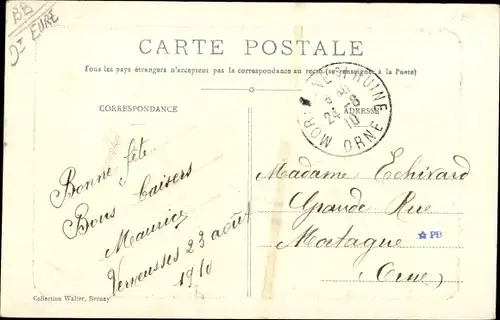 BB
Dt EURE
CARTE POSTALE
Tous les pays étrangers n'acceptent pas la correspondance au recto (se renseigner à la Poste)
CORRESPONDANCE
ADRESSE
24 -8
10
ORNE
Bonne fête.
Bons baisers
Maurice
Verneusses 23 août
1910
Madame Echivard
Grande Rue
Mortagne
Orne
PB
Collection Walter, Bernay